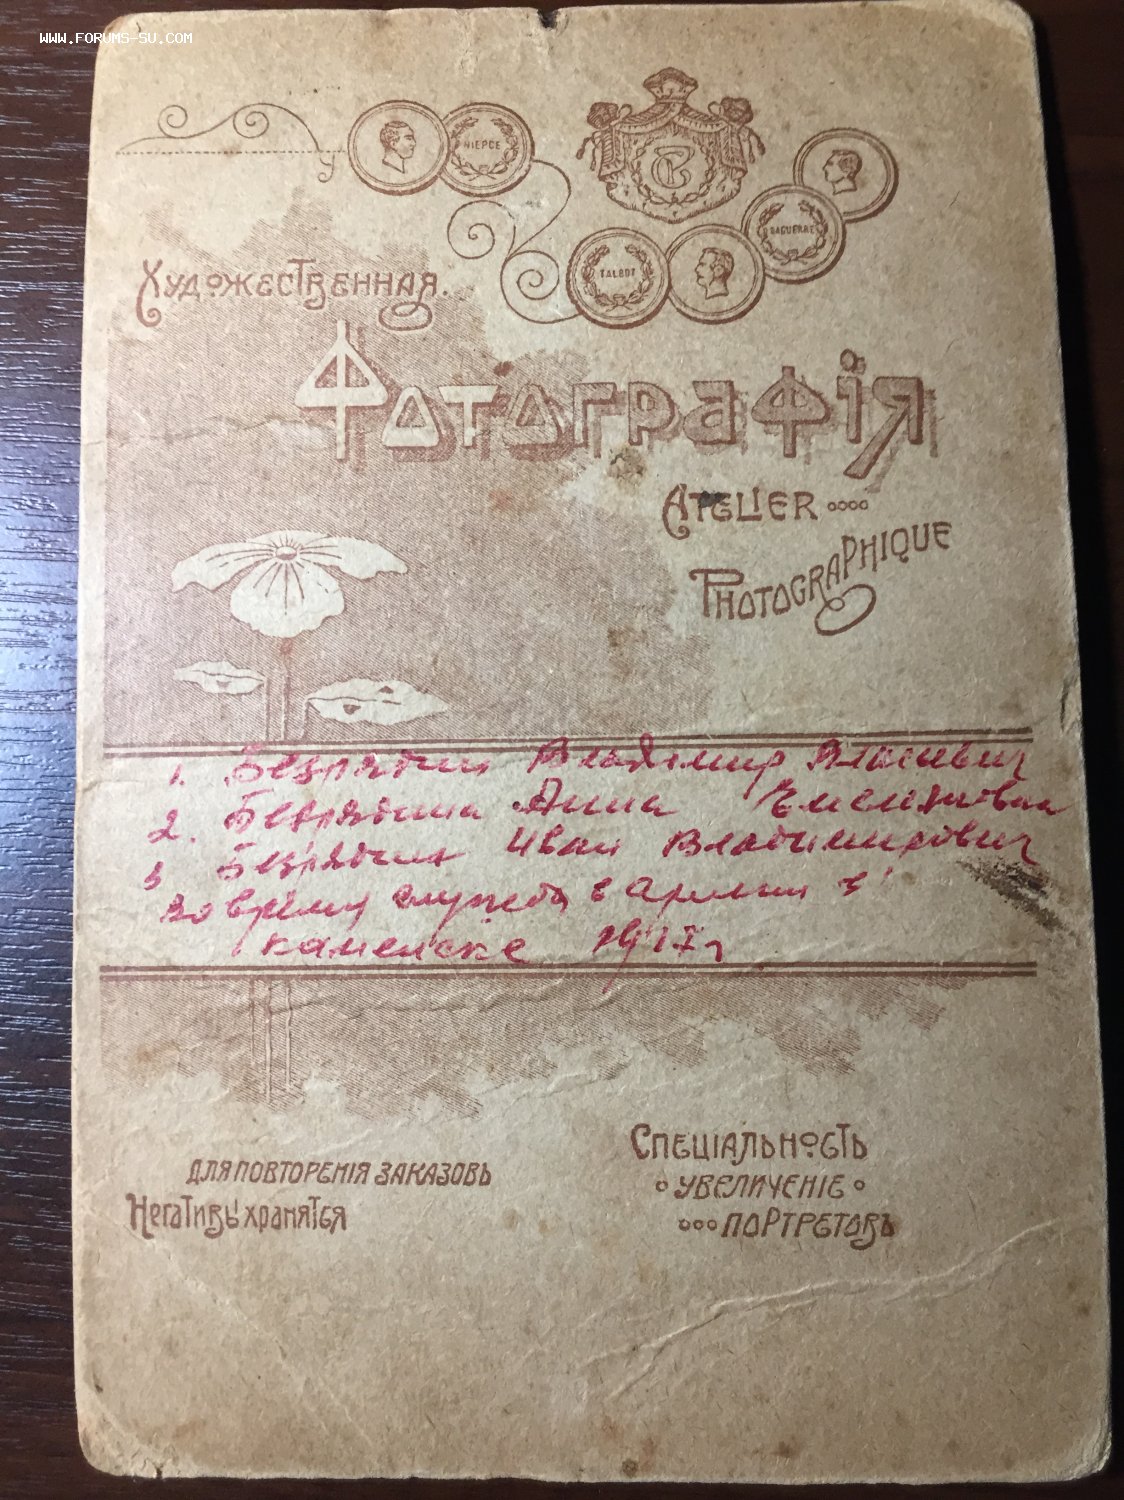 WWW.FORUMS-SU.COM
NIEPCE
DAGUERRE
TALBOT
Художественная.
Фотографія
Atelier
Photographique
1. Безрядин Владимир Власович
2. Безрядина Анна
3 Безрядин Иван Владимирович
во время службы в армии в
Каменске
Для повторенія заказовъ
Негативы хранятся
Спеціальность
увеличеніе
портретовъ